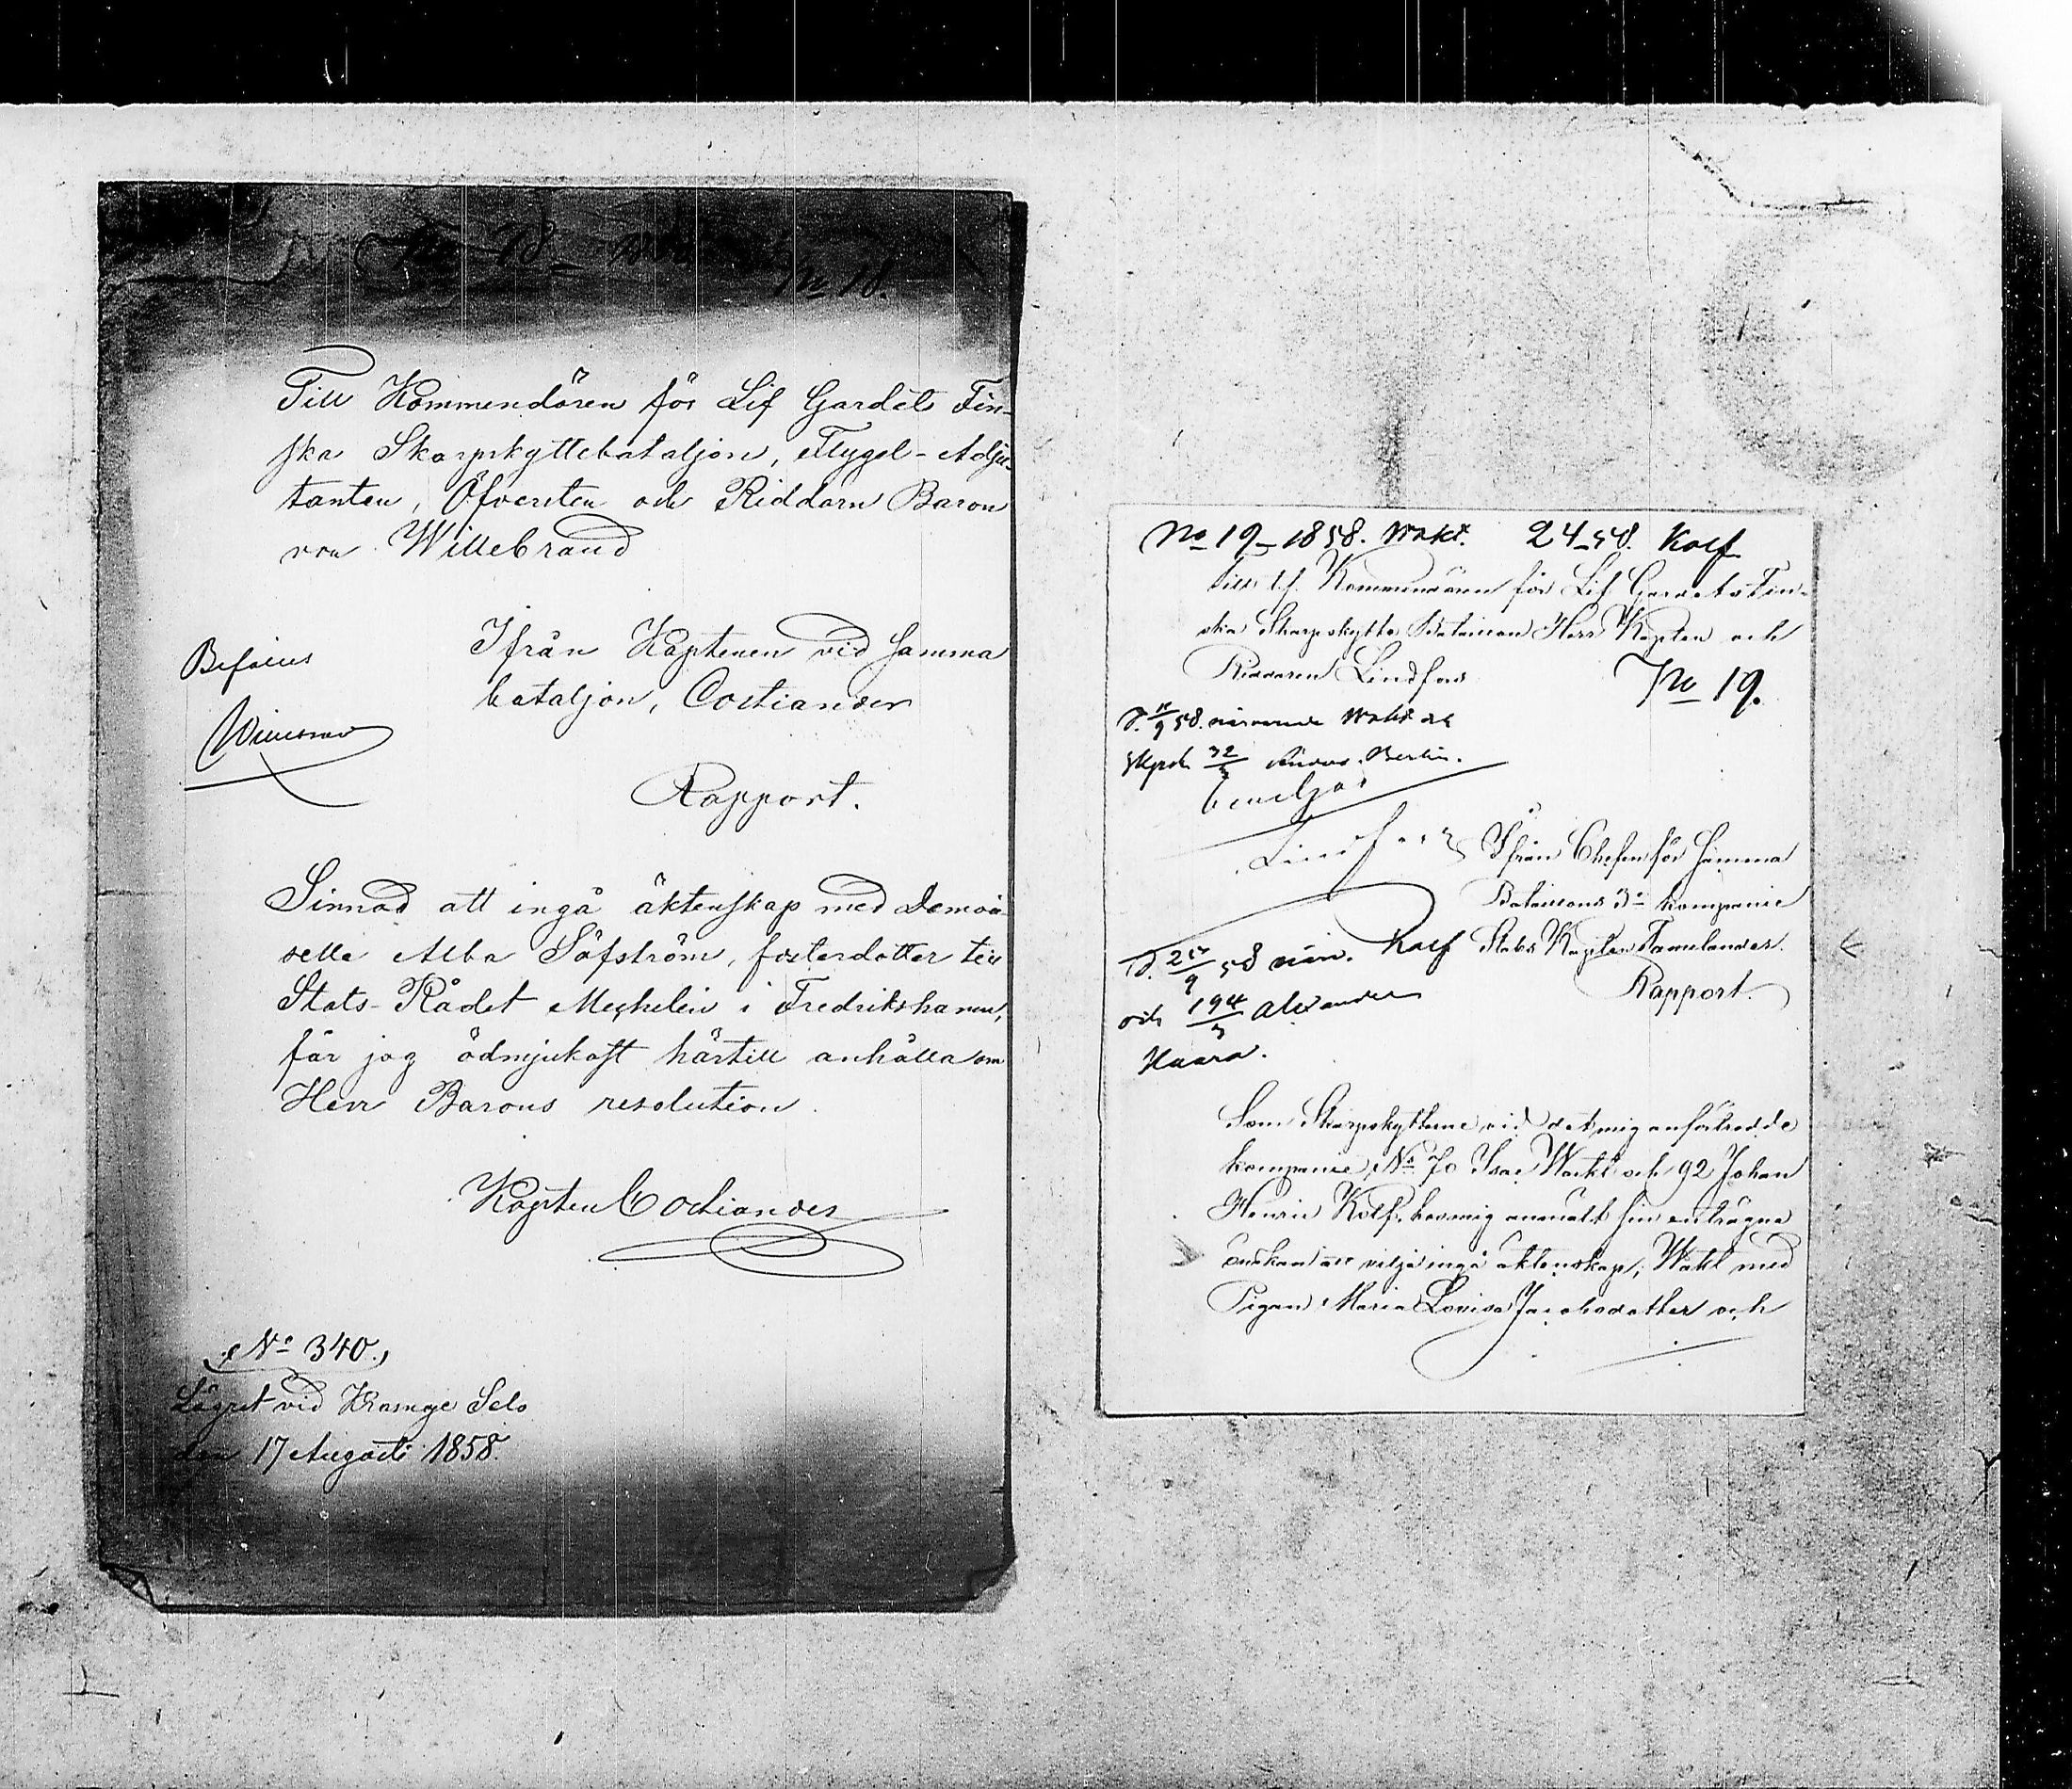 No 18.
Till Kommendören för Lif Gardets Fin-
ska Skarpskyttebataljon, Flygel-Adju-
tanten, Öfversten och Riddarn Baron
von Willebrand
Ifrån Kaptenen vid samma
bataljon, Costiander
Bifalles
Rapport.
Sinnad att ingå äktenskap med Demoi-
selle Alba Söfström, fosterdotter till
Stats-Rådet Mechelin i Fredrikshamn,
får jag ödmjukast härtill anhålla om
Herr Barons resolution.
Kapten Costiander
No 340.
Lägret vid Krasnoje Selo
den 17 Augosti 1858.
No 19-1858. Wakt. 24-58. Kolf
Till t.f. Kommendören för Lif Gardets Fin-
ska Skarpskytte Bataillon Herr Kapten och
Riddaren Lindfors
No 19.
58. Wakt
32 Berlin.
beviljas
Lindfors
Ifrån Chefen för samma
Bataillons 3e kompanie
Stabs Kapten Tamelander.
Rapport.
58 Kolf
och 194 Alexander
Haara.
Som Skarpskyttarne vid det mig anförtrodde
kompanie, No 70 Isac Wakt och 92 Johan
Henric Kolf, hos mig anmält sin enträgna
önskan att vilja ingå äktenskap; Wakt med
Pigan Maria Lovisa Jacobsdotter och